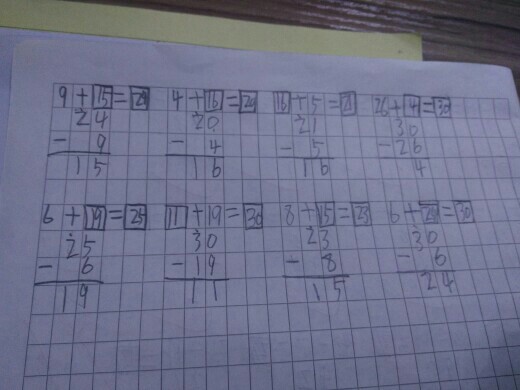 9+15=24 4+16=20 16+5=21 26+4=30
24 20 21 30
-9 -4 -5 -26
15 16 16 4
6+19=25 11+19=30 8+15=23 6+24=30
25 30 23 30
-6 -19 -8 -6
19 11 15 24